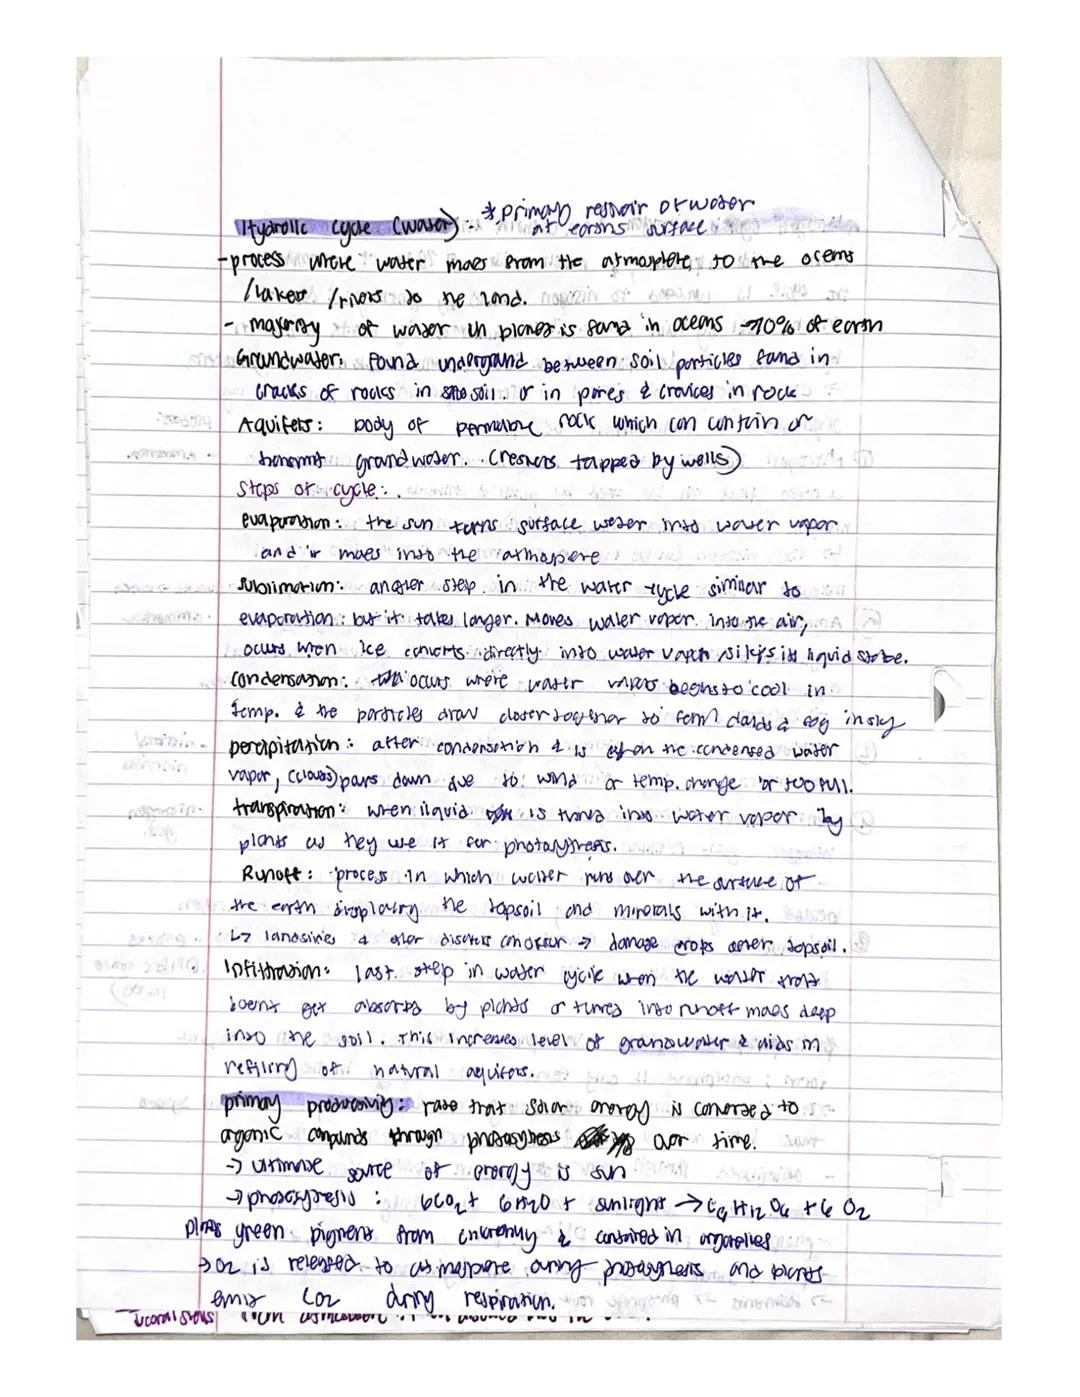 Hydrolic cycle (water):- *primary resivoir of water
at earths surface
-process where water moves from the atmosphere, to the oceans
/lakes /rivers to the land.
- majority of water in planet is found in oceans →70% of earth
Groundwater: Found underground between soil particles found in
cracks of rocks in soil. or in pores & crovices in rock
Aquifers: body of permeable rock which can contain or
transmit groundwater. tapped by wells)
Steps of cycle:
evaporation: the sun turns surface water into water vapor
and it moves into the atmospere
Sublimation: another step in the water cycle similar to
evaporation: but it takes longer. Moves water vapor into the air,
occurs when ice converts directly into water vapor skips its liquid state.
Condensation: occurs where water vapors begins to cool in
temp. & the particles draw closer together to form clouds & fog in sky
percipitation: after condensation & is when the condensed water
vapor, (clouds) pours down due to wind or temp. change or too full.
transpiration: when liquid is turned into water vapor by
plants as they use it for photosynthesis.
Runoff: process in which water runs over the surface of
the earth displacing the topsoil and minerals with it.
↳ landslides & other disaters can occur → damage crops topsoil.
Infiltration: last step in water cycle when the water that
doent get absorbed by plants or turned into runoff moves deep
into the soil. This increases level of groundwater & aids in
refilling of natural aquifers.
primary productivity: rate that solar energy is converted to
organic compunds through photosynthesis over time.
→ ultimate source of energy is sun
→ photosynthesis: 6CO₂ + 6H₂O + sunlight → C₆H₁₂O₆ + 6 O₂
green pigment from & contained in organelles
→ O₂ is released to atmosphere during photosynthesis and plants
emit CO₂ during respiration.